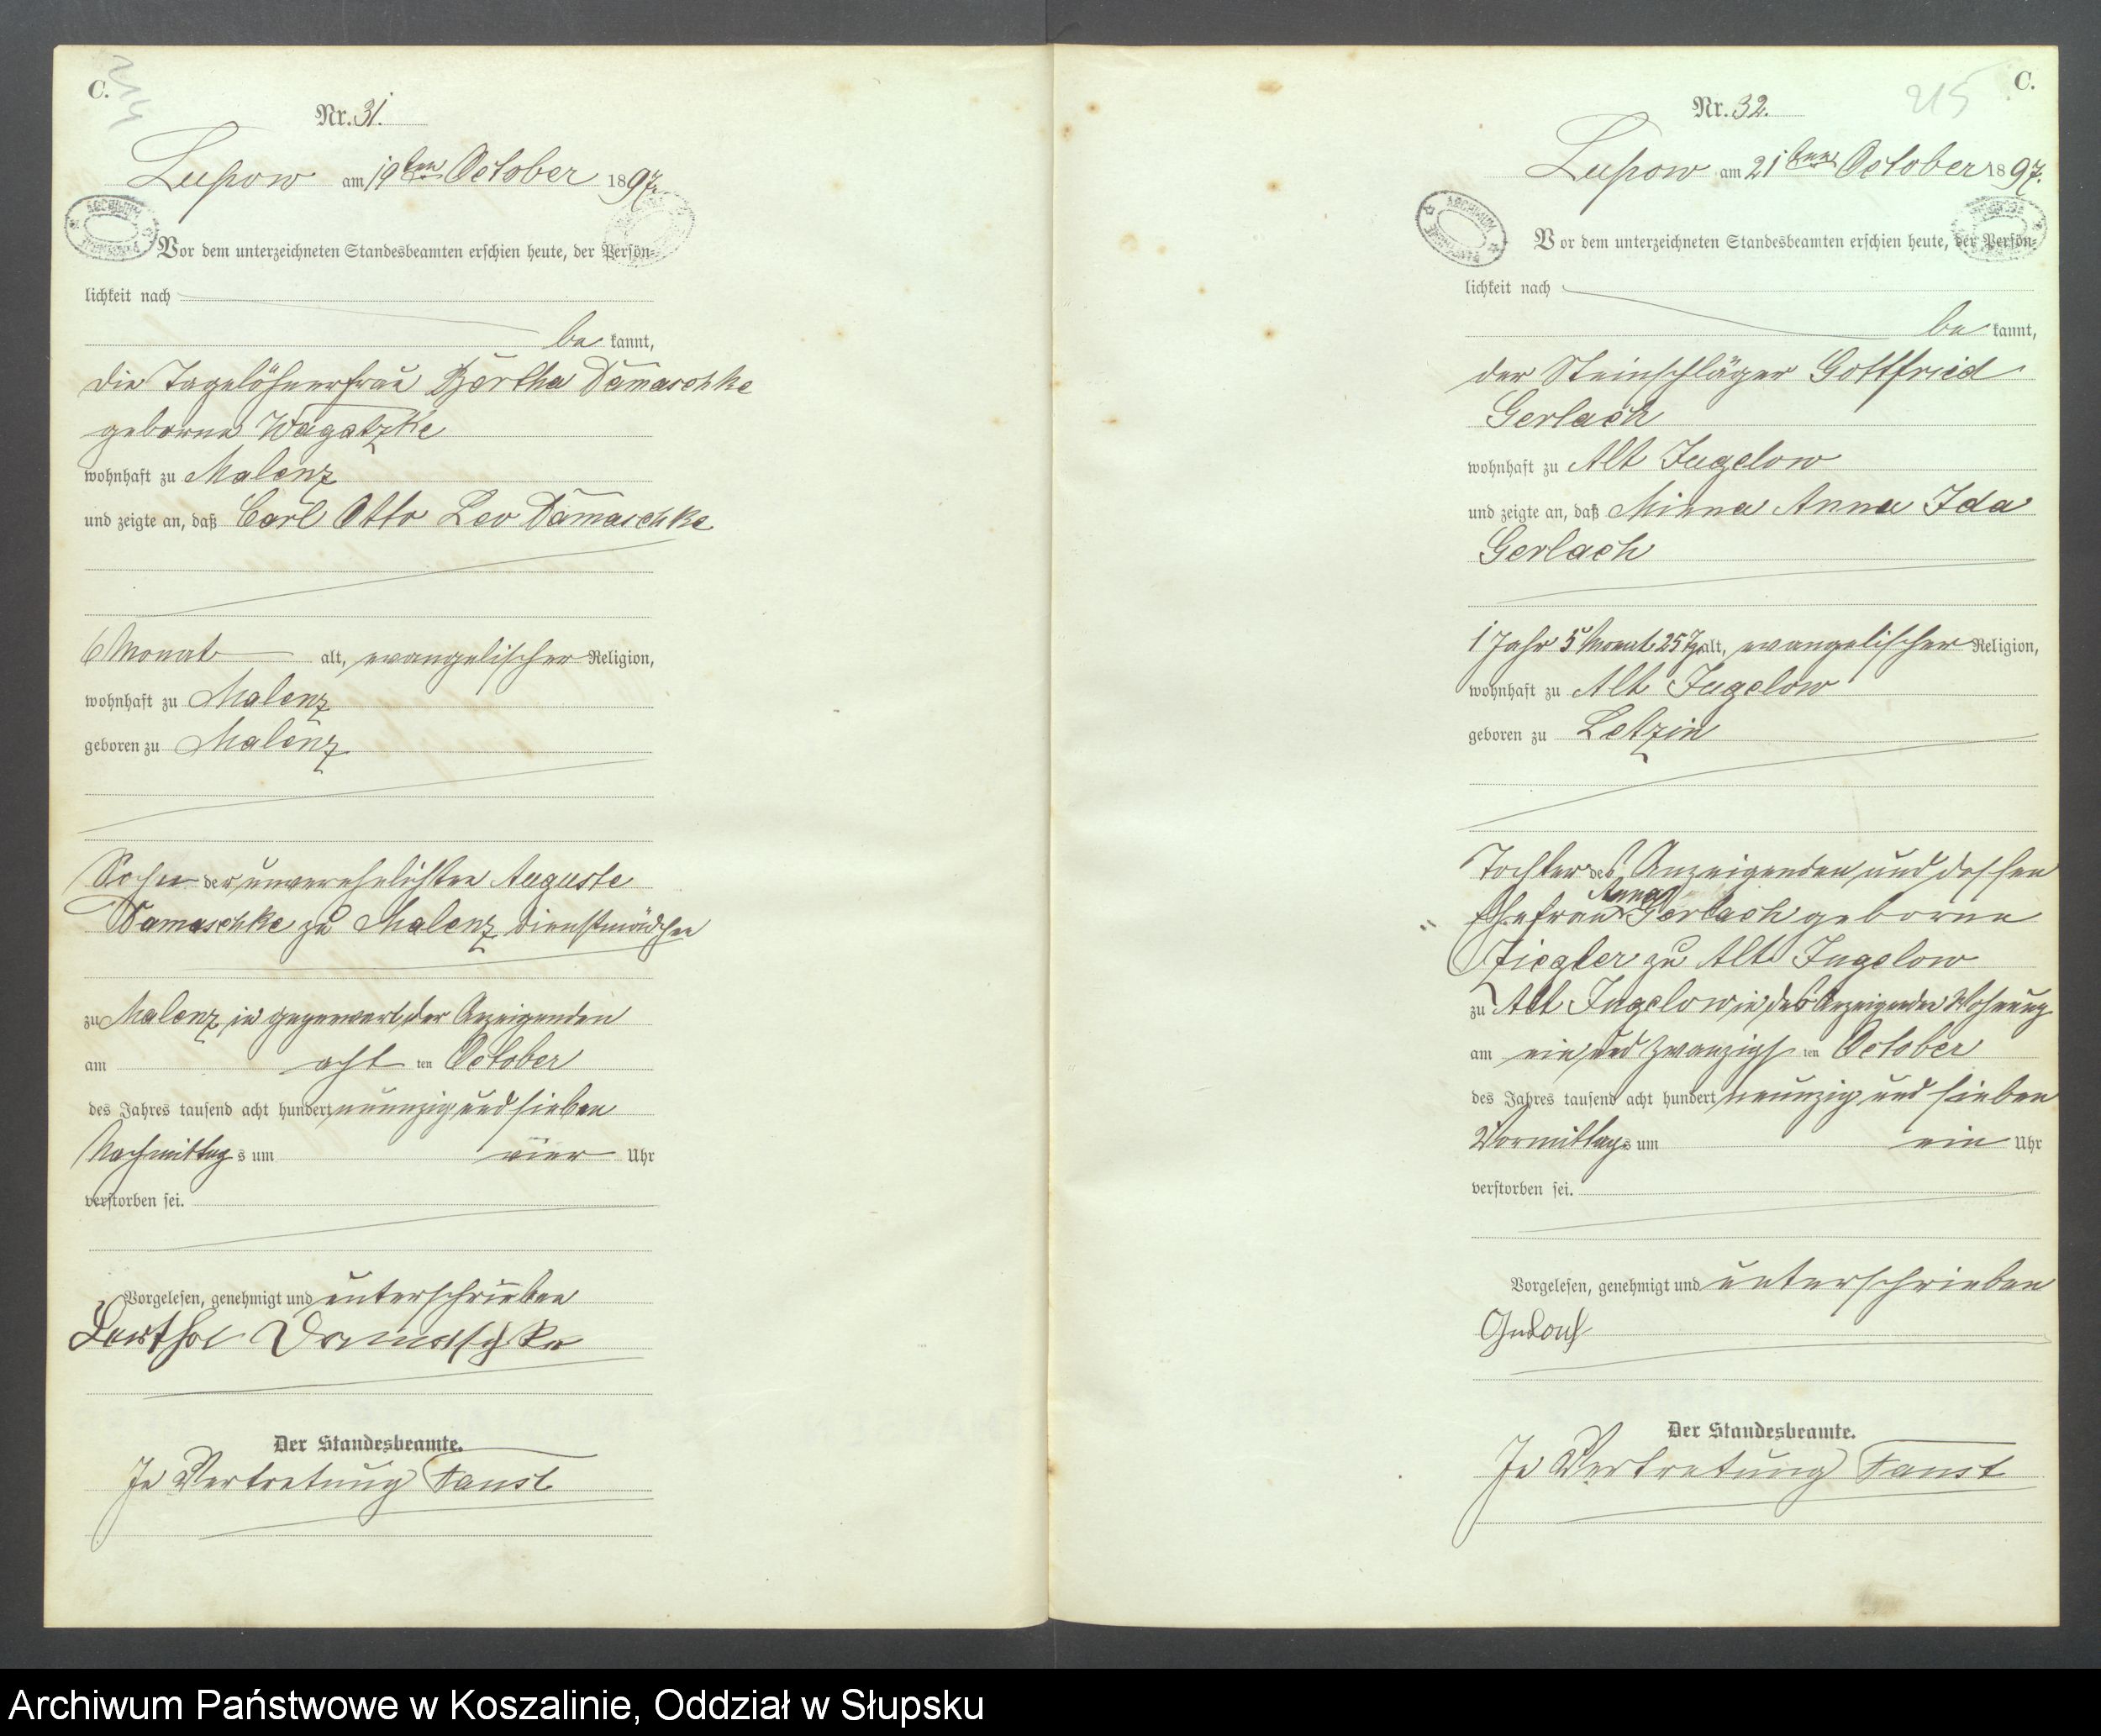 C.
214
Nr. 31.
Lupow am 19ten October 1897.
ARCHIWUM
Vor dem unterzeichneten Standesbeamten erschien heute, der Persön-
lichkeit nach
be kannt,
die Tagelöhnerfrau Bertha Damaschke
geborne Wagatzke
wohnhaft zu Malenz
und zeigte an, daß Carl Otto Leo Damaschke
6 Monat alt, evangelischer Religion,
wohnhaft zu Malenz
geboren zu Malenz
Sohn der unverehelichten Auguste
Damaschke zu Malenz Dienstmädchen
zu Malenz in gegenwart der Anzeigenden
am acht ten October
des Jahres tausend acht hundert neunzig und sieben
Nachmittag s um vier Uhr
verstorben sei.
Vorgelesen, genehmigt und unterschrieben
Damaschke
Der Standesbeamte.
In Vertretung Faust
C.
215
Nr. 32.
Lupow am 21ten October 1897.
ARCHIWUM
Vor dem unterzeichneten Standesbeamten erschien heute, der Persön-
lichkeit nach
be kannt,
der Steinschläger Gottfried
Gerlach
wohnhaft zu Alt Jugelow
und zeigte an, daß Minna Anna Ida
Gerlach
1 Jahr 5 Monat 25 Tg. alt, evangelischer Religion,
wohnhaft zu Alt Jugelow
geboren zu Letzin
Tochter des Anzeigenden und dessen
Ehefrau Anna Gerlach geborne
Ziegler zu Alt Jugelow
zu Alt Jugelow in des Anzeigenden Wohnung
am ein und zwanzigs ten October
des Jahres tausend acht hundert neunzig und sieben
Vormittags um ein Uhr
verstorben sei.
Vorgelesen, genehmigt und unterschrieben
Der Standesbeamte.
In Vertretung Faust
Archiwum Państwowe w Koszalinie, Oddział w Słupsku